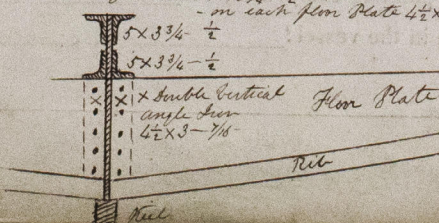 - on each floor Plate 4½ x
5 x 3¾ - ½
5 x 3¾ - ½
x Double Vertical
angle Iron
4½ x 3 - 7/16
Floor Plate
Rib
Keel